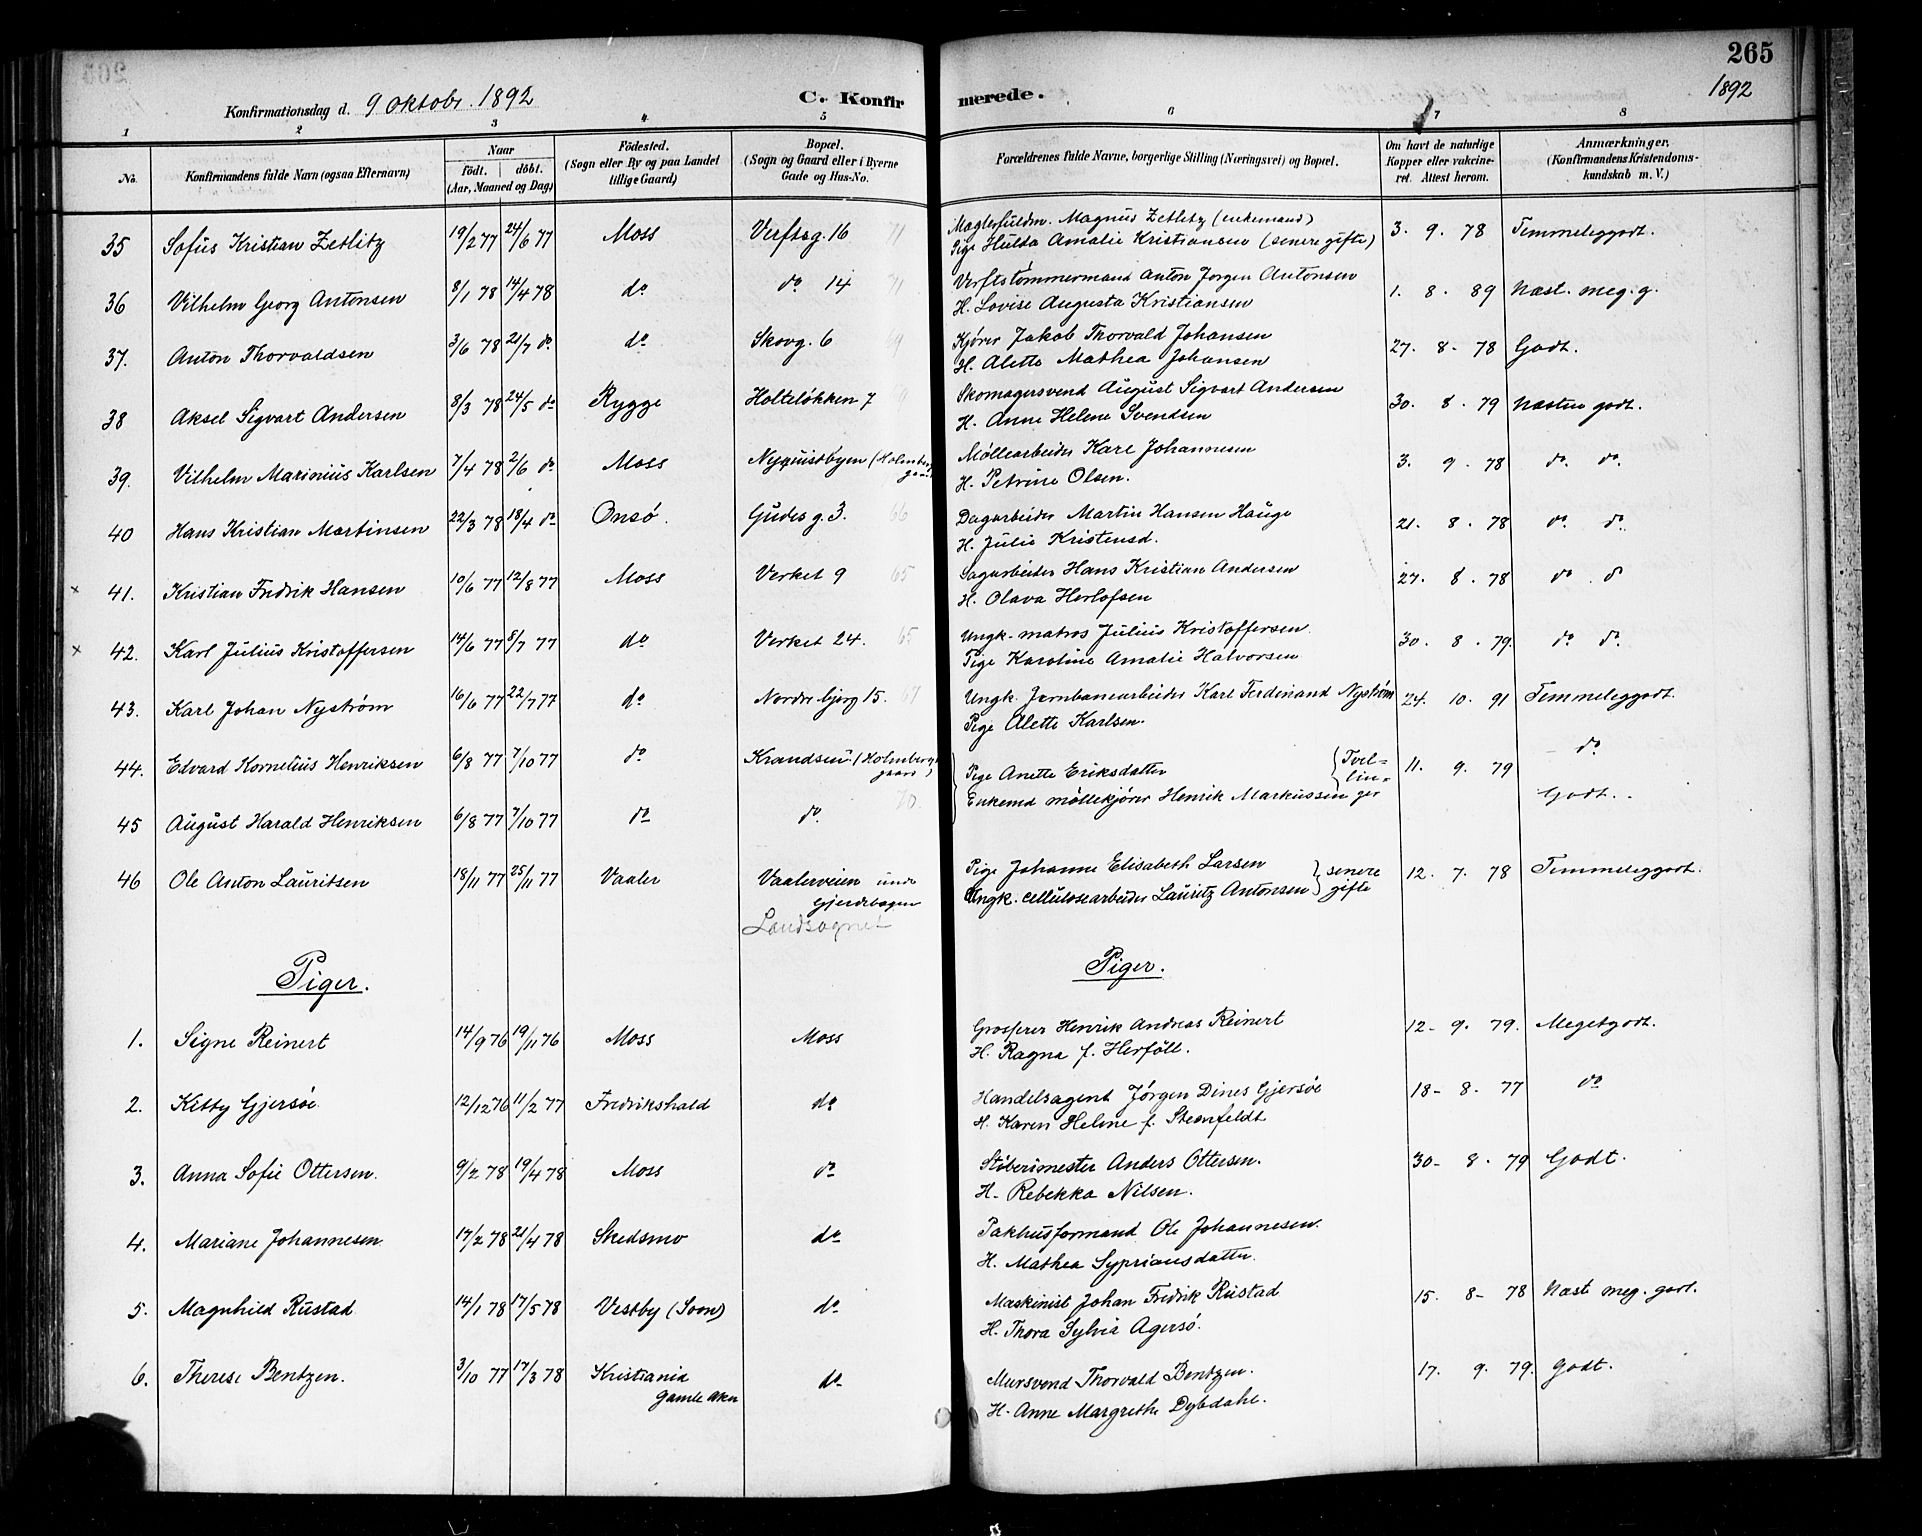 265
1892
Konfirmationsdag d. 9 Oktobr. 1892
C. Konfirmerede.
1 2 3 4 5 6 7 8
No.
Konfirmandens fulde Navn (ogsaa Efternavn)
Naar
födt. döbt.
(Aar, Maaned og Dag)
Födested.
(Sogn eller By og paa Landet
tillige Gaard)
Bopæl.
(Sogn og Gaard eller i Byerne
Gade og Hus-No.
Forældrenes fulde Navne, borgerlige Stilling (Næringsvei) og Bopæl.
Om havt de naturlige
Kopper eller vakcine-
ret. Attest herom.
Anmærkninger.
(Konfirmandens Kristendoms-
kundskab m. V.)
35 Sofus Kristian Zetlitz 19/2 77 24/6 77 Moss Verftsg. 16 71 Magnus Zetlitz (enkemand) 3. 9. 78 Temmeleggodt.
Pige Hulda Amalie Kristiansen (senere gifte)
36 Vilhelm Georg Antonsen 8/1 78 14/4 78 do do 14 71 Verftstømmermand Anton Jørgen Antonsen 1. 8. 89 Næst. meg. g.
H. Lovise Augusta Kristiansen
37. Anton Thorvaldsen 3/6 78 21/7 do do Skovg. 6 69 Kjører Jakob Thorvald Johansen 27. 8 - 78 Godt.
H. Alette Mathea Johansen
38 Aksel Sigvart Andersen 8/3 78 24/5 do Rygge Holteløkken 7 Skomagersvend August Sigvart Andersen 30. 8. 79 Næsten godt.
H. Anne Helene Svendsen
39. Vilhelm Marinius Karlsen 7/4 78 2/6 do Moss Nyquistbyen (Holmbergs Møllearbeider Karl Johannesen 3. 9. 78 do. do.
gaard H. Petrine Olsen.
40 Hans Kristian Martinsen 22/3 78 18/4 do Onsö. Gudes g. 3. 66 Dagarbeider Martin Hansen Hauge 21. 8. 78 do. do.
H. Julie Kristensd.
× 41. Kristian Fredrik Hansen 10/6 77 12/8 77 Moss Verket 9 65 Sagarbeider Hans Kristian Andersen 27. 8. 78 do. d
H. Olava Herlofsen
× 42. Karl Julius Kristoffersen 14/6 77 8/7 77 do Verket 24. 65 Ungk. matros Julius Kristoffersen 30. 8. 79. do do.
Pige Karoline Amalie Halvorsen
43. Karl Johan Nyström 16/6 77 22/7 77 do Nordre bjerg 15. 67 Ungk. Jernbanearbeider Karl Ferdinand Nyström 24. 10. 91 Temmeleggodt.
Pige Alette Karlsen.
44. Edvard Kornelius Henriksen 6/8 77 7/10 77 do (Holmbergs Pige Anette Eriksdatter { Tvil- 11. 9. 79 do
gaard) Enkemd møllekjører Henrik Markussen { lin-
ger
45 August Harald Henriksen 6/8 77 7/10 77 do do. 70. Godt.
46 Ole Anton Lauritsen 18/11 77 25/11 77 Vaaler Vaalerveien unde Pige Johanne Elisabeth Larsen } senere 12. 7. 78 Temmeleggodt.
Gjerdebogen Ungk. cellulosearbeider Lauritz Antonsen } gifte
Landsognet
Piger. Piger.
1. Signe Reinert 14/9 76 19/11 76 Moss Moss Grosserer Henrik Andreas Reinert 12 - 9. 79. Megetgodt.
H. Ragna f. Herföll.
2. Kitty Gjersøe 12/12 76 11/2 77 Fredrikshald do Handelsagent Jørgen Dines Gjersøe 18 - 8. 77 do
H. Karen Helene f. Steenfeldt
3. Anna Sofie Ottersen. 9/2 78 19/4 78 Moss do Støberimester Anders Ottersen. 30 - 8. 79 Godt.
H. Rebekka Nilsen.
4. Mariane Johannesen 17/2 78 21/4 78 Skedsmo do Pakhusformand Ole Johannesen.
H. Mathea Syprionsdatter.
5. Magnhild Rustad 14/1 78 17/5 78 Vestby (Soon) do Maskinist Johan Fredrik Rustad 15. 8 - 78 Næst meg. godt.
H. Thora Sylvia Agersö.
6. Therese Bentzen. 3/10 77 17/3 78 Kristiania do Mursvend Thorvald Bentzen. 17. 9. 79. Godt.
Gamle Aker H. Anne Margrethe Dybdahl.